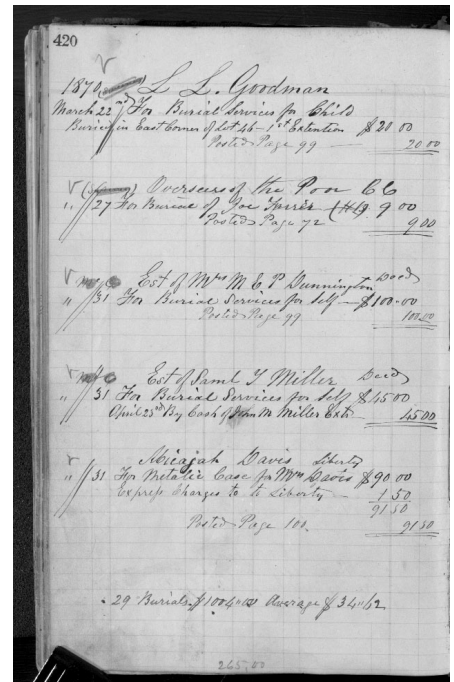 420
1870 L L. Goodman
March 22nd For Burial Services for Child
Buried in East Corner of Lot 46 - 1st Extention $20 00
Posted Page 99 — 20.00
Overseers of the Poor CC
" 27 For Burial of Joe 9 00
Posted Page 72 9.00
Est of Mrs M E P Dunnington Decd
" 31 For Burial Services for Self — $100.00
Posted Page 99 100.00
Est of Saml T Miller Decd
" 31 For Burial Services for Self $45 00
April 25th By Cash of John M Miller Extr — 45.00
Micajah Davis Liberty
" 31 For Metalic Case for Mrs Davis $90 00
Express Charges to to Liberty — 1 50
91 50
Posted Page 100. 91 50
29 Burials $1004"00 Average $34"62
265.00